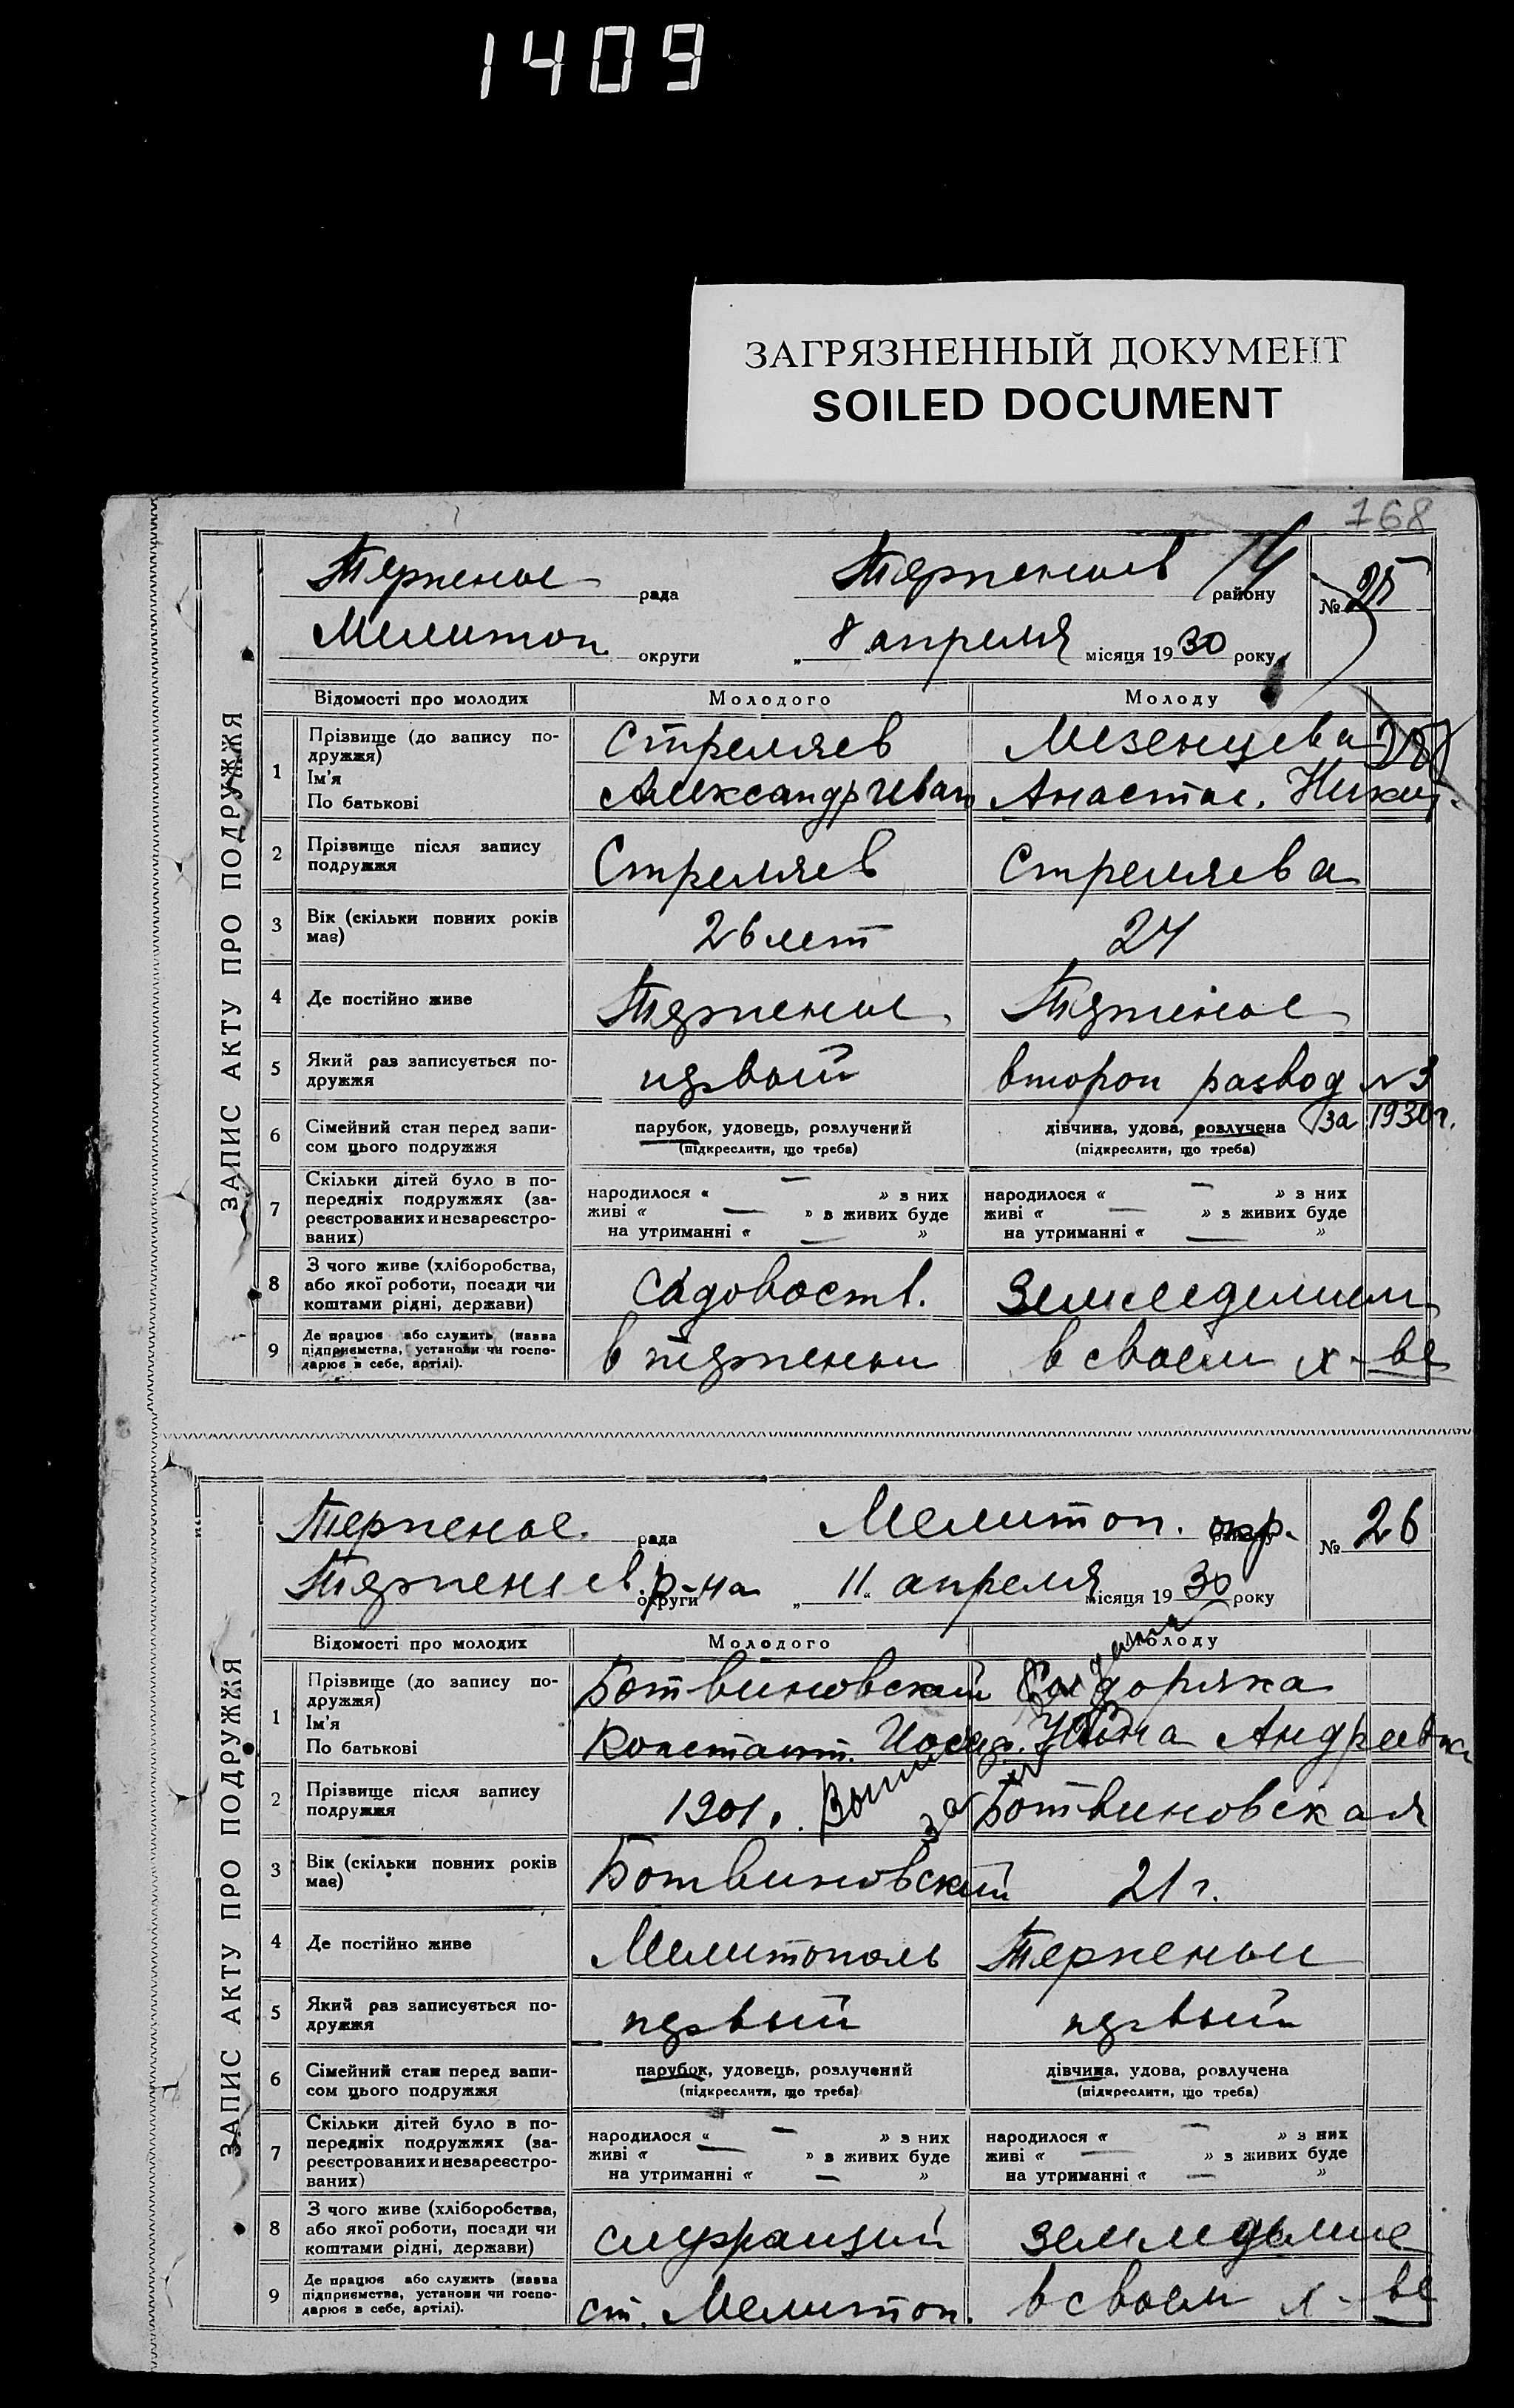 1409
ЗАГРЯЗНЕННЫЙ ДОКУМЕНТ
SOILED DOCUMENT
168
Терпеное рада Терпеньев 14 району № 25
Мелитоп. округи „8 апреля місяця 1930 року
ЗАПИС АКТУ ПРО ПОДРУЖЖЯ
Відомості про молодих Молодого Молоду
1 Прізвище (до запису по-
дружжя)
Ім'я
По батькові
Стреляев Мезенцева
Александр Иван Анастас. Никит.
2 Прізвище після запису
подружжя
Стреляев Стреляева
3 Вік (скільки повних років
має)
26 лет 24
4 Де постійно живе Терпеное Терпеное
5 Який раз записується по-
дружжя
первый второй развод №3
за 1930 г.
6 Сімейний стан перед запи-
сом цього подружжя
парубок, удовець, розлучений
(підкреслити, що треба)
дівчина, удова, розлучена
(підкреслити, що треба)
7 Скільки дітей було в по-
передніх подружжях (за-
реєстрованих и незареєстро-
ваних)
народилося « — » з них
живі « — » з живих буде
на утриманні « — »
народилося « — » з них
живі « — » з живих буде
на утриманні « — »
8 З чого живе (хліборобства,
або якої роботи, посади чи
коштами рідні, держави)
садовоств. Земледелием
9 Де працює або служить (назва
підприємства, установи чи госпо-
дарює в себе, артілі).
в терпеньи в своем х-ве
Терпеное. рада Мелитоп. окр. району № 26
Терпеньев. р-на округи „11„ апреля місяця 1930 року
ЗАПИС АКТУ ПРО ПОДРУЖЖЯ
Відомості про молодих Молодого Молоду
1 Прізвище (до запису по-
дружжя)
Ім'я
По батькові
Ботвиновский
Констант. Иосиф. Андреевна
2 Прізвище після запису
подружжя
1901. Ботвиновская
3 Вік (скільки повних років
має)
Ботвиновский 21 г.
4 Де постійно живе Мелитополь Терпеньи
5 Який раз записується по-
дружжя
первый первый
6 Сімейний стан перед запи-
сом цього подружжя
парубок, удовець, розлучений
(підкреслити, що треба)
дівчина, удова, розлучена
(підкреслити, що треба)
7 Скільки дітей було в по-
передніх подружжях (за-
реєстрованих и незареєстро-
ваних)
народилося « — » з них
живі « — » з живих буде
на утриманні « — »
народилося « — » з них
живі « — » з живих буде
на утриманні « — »
8 З чого живе (хліборобства,
або якої роботи, посади чи
коштами рідні, держави)
земледелие
9 Де працює або служить (назва
підприємства, установи чи госпо-
дарює в себе, артілі).
ст. Мелитоп. в своем х-ве